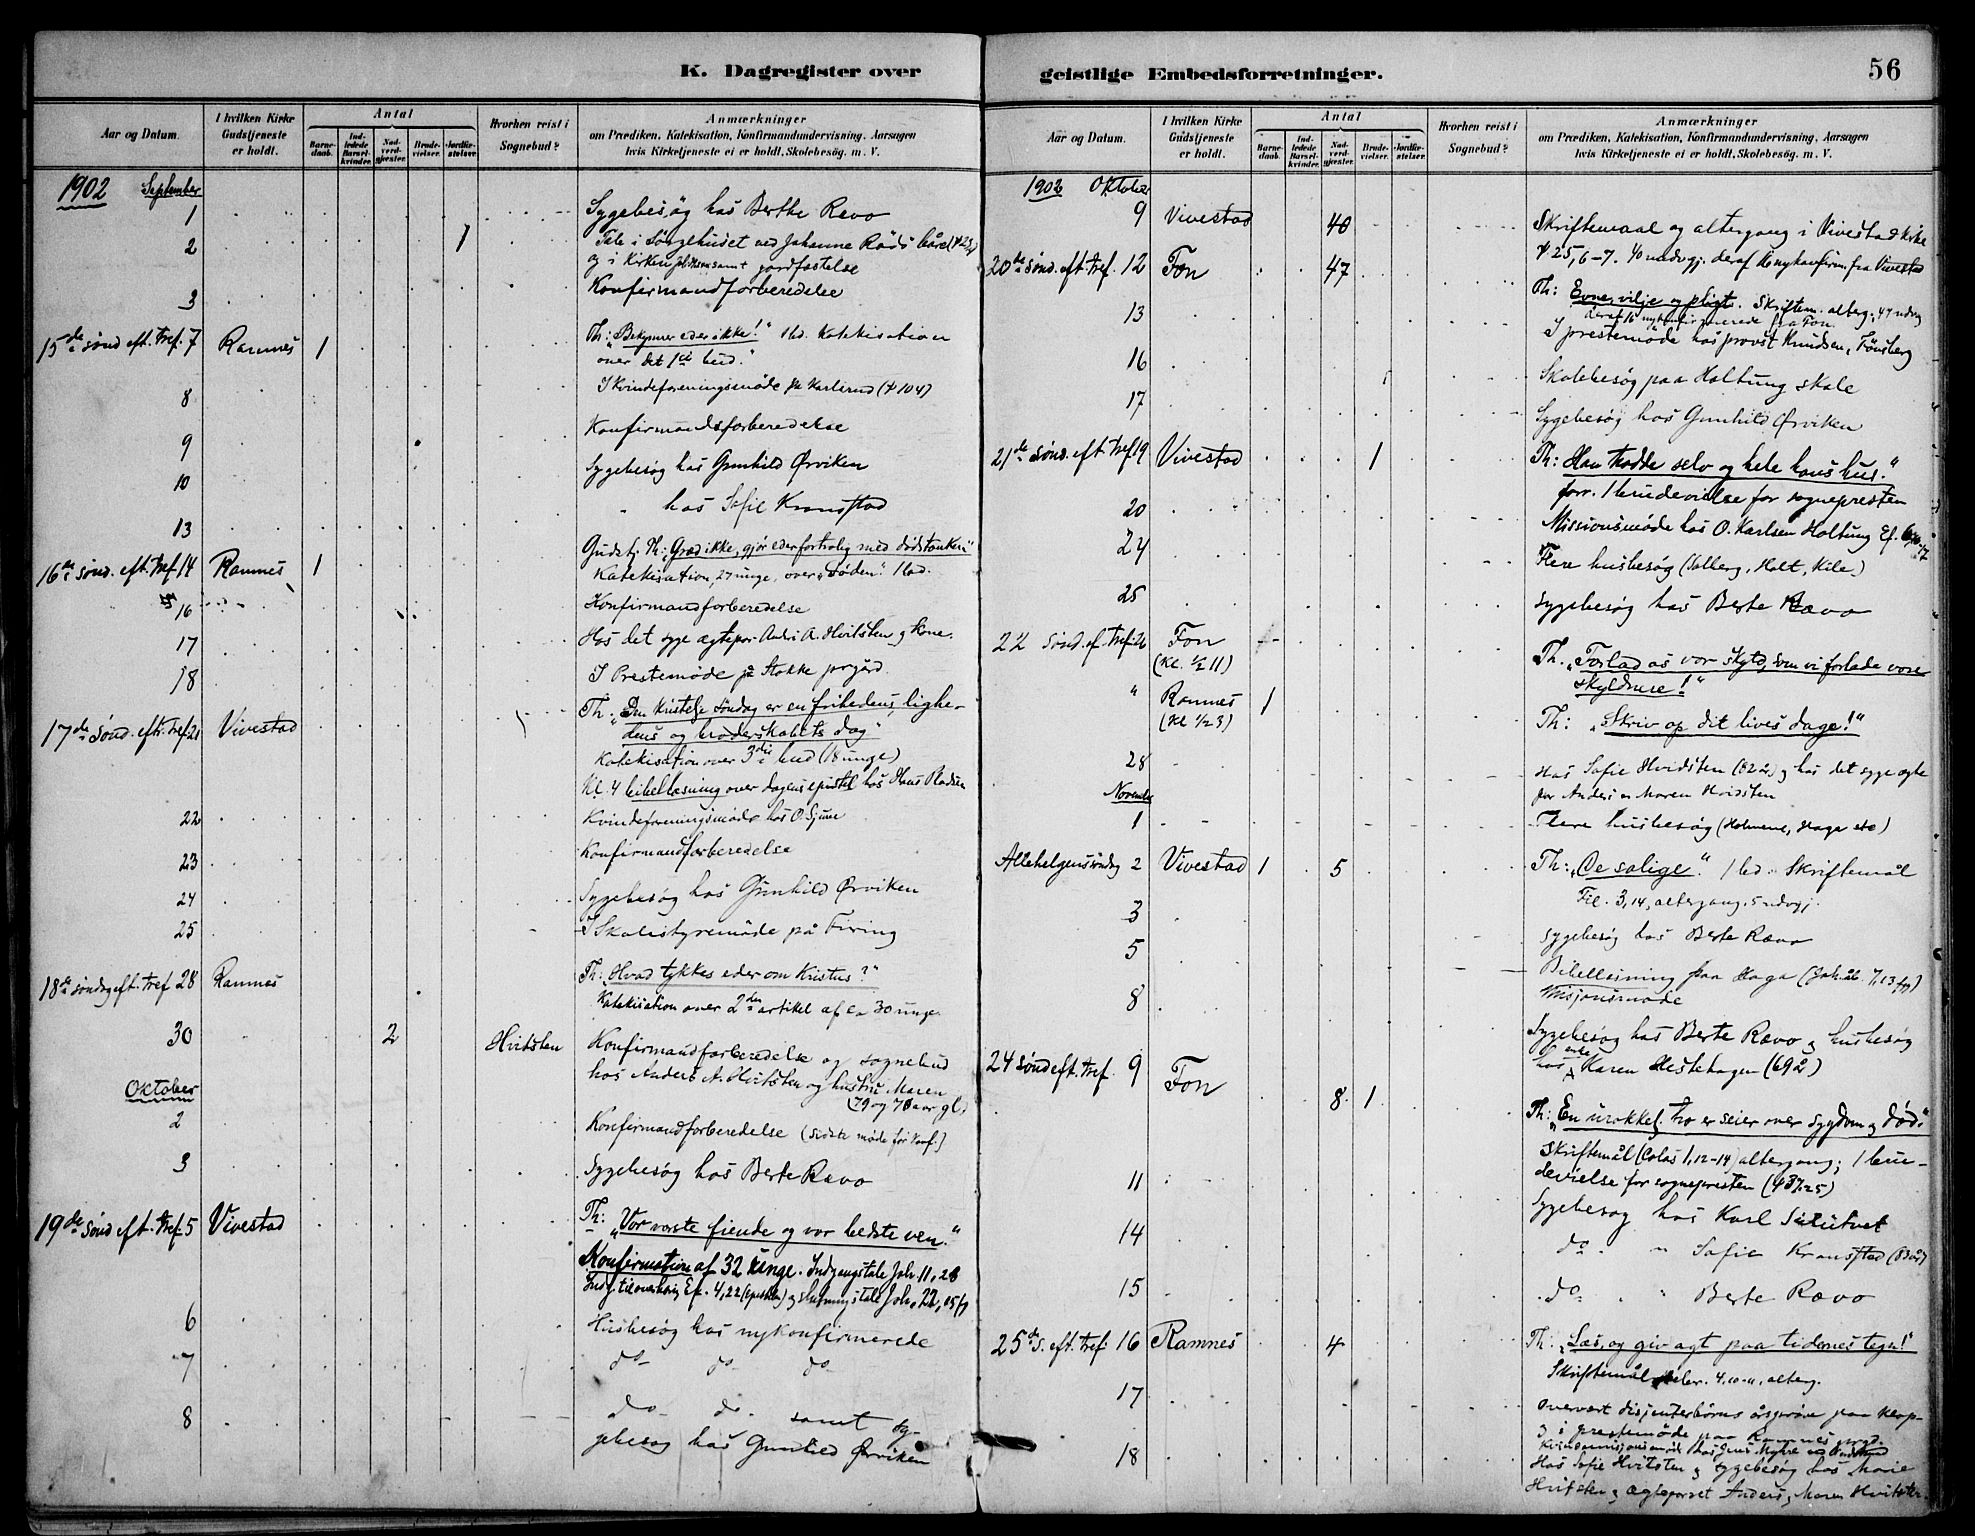 K. Dagregister over
Aar og Datum.
I hvilken Kirke Gudstjeneste er holdt.
Antal
Barnedaab.
Indledede Barselkvinder.
Nadverdgjester.
Brudevielser.
Jordfæstelser.
Hvorhen reist i Sognebud?
Anmærkninger
om Prædiken, Katekisation, Konfirmandundervisning, Aarsagen
hvis Kirketjeneste ei er holdt, Skolebesøg. m. V.
1902 September
1 Sygebesøg hos Berthe Revo
2 1 Tale i Sørgehuset ved Johanne Röds båre
og i Kirken samt jordfæstelse
3 Konfirmandforberedelse
15de sönd. eft. tref. 7 Ramnes 1 Th: "Bekymrer eder ikke!" 1 bd. Katekisation
over det 1ste bud."
8 I Kvindeforeningsmöde på Karlsrud (ψ 104)
9 Konfirmandsforberedelse
10 Sygebesøg hos Gunhild Ørviken
13 " hos Sofie Kranstad
16de sønd. eft. tref 14 Ramnes 1 Gudstj. Th: "Græd ikke, gjør eder fortrolig med dødstanken"
Katekisation, 27 unge, over "Döden". 1 bd.
16 Konfirmandforberedelse
17 Hos det syge ægtepar Anders A. Hvitsten og kone.
18 I Prestemöde på Stokke prgård
17de sønd. eft. tref 21 Vivestad Th: "Den kristelige söndag er en frihedens, lighe-
dens og broderskabets dag"
Katekisation over 3die bud (18 unge)
Kl. 4 bibellæsning over dagens epistel hos Hans Rladsen
22 Kvindeforeningsmöde hos O. Sjuve
23 Konfirmandforberedelse
24 Sygebesøg hos Gunhild Ørviken
25 I Skolestyremöde på Firing
18de søndag eft. tref 28 Ramnes Th: "Hvad tykkes eder om Kristus?"
Katekisation over 2den artikel af ca 30 unge.
30 2 Hvitsten Konfirmandforberedelse og sognebud
hos Anders A. Hvitsten og hustru Maren
(79 og 78 aar gl.)
Oktober
2 Konfirmandforberedelse (sidste møde før Konf.)
3 Sygebesøg hos Berte Revo
19de sønd eft. tref 5 Vivestad Th: "Vor værste fiende og vor bedste ven."
Konfirmation af 32 unge. Indgangstale Joh. 11, 28
Ef. 4,22 (epistelen) og slutningstale Joh.
6 Husbesøg hos nykonfirmerede
7 do do do
8 do do samt sy-
gebesøg hos Gunhild Ørviken
geistlige Embedsforretninger.
56
Aar og Datum.
I hvilken Kirke Gudstjeneste er holdt.
Antal
Barnedaab.
Indledede Barselkvinder.
Nadverdgjester.
Brudevielser.
Jordfæstelser.
Hvorhen reist i Sognebud?
Anmærkninger
om Prædiken, Katekisation, Konfirmandundervisning, Aarsagen
hvis Kirketjeneste ei er holdt, Skolebesøg. m. V.
1902 Oktober
9 Vivestad 40 Skriftemaal og altergang i Vivestad kirke
ψ 25, 6-7. 40 nadvgj. deraf nykonfirm. fra Vivestad
20de sønd. eft. tref. 12 Fon 47 Th: Evne, vilje og pligt. Skriftem. alterg. 47 nadvg
deraf 16 nykonfirmerede fra Fon.
13 I prestemøde hos provst Knudsen, Tönsberg
16 Skolebesøg paa Holtung skole
17 Sygebesøg hos Gunhild Ørviken
21de sønd. eft. tref 19 Vivestad 1 Th: "Han trodde selv og hele hans hus."
forr. 1 brudevielse for sognepresten
20 Missionsmøde hos O. Karlsen Holtung Ef.
24 Flere husbesøg (Solberg, Holt, Kile)
25 Sygebesøg hos Berte Rævo
22 sønd. ef. tref 26 Fon
(Kl. 1/2 11) Th. "Forlad os vor skyld, som vi forlade vore
skyldnere!"
" Ramnes 1
(Kl 1/2 3) Th: "Skriv op dit livs dage!"
28 Hos Sofie Hvidsten (82 å) og hos det syge ægte
par Anders og Maren Hvidsten
November
1 Flere husbesøg (Holmene, Haga etc)
Allehelgensöndag 2 Vivestad 1 5 Th: "De salige". 1 bd. Skriftemål
Fil. 3, 14, altergang, 5 ndvgj.
3 Sygebesøg hos Berte Rævo
5 Bibellesning paa Haga
Misjonsmøde
8 Sygebesøg hos Berte Rævo og husbesøg
hos enke Karen Hestehagen (69 å)
24 sønd eft. tref. 9 Fon 8 1 Th: "En urokkel. tro er seier over sygdom og död"
Skriftemål (Colos 1, 12-14) altergang; 1 bru-
devielse for sognepresten (ψ 37, 25)
11 Sygebesøg hos Karl
14 do " Sofie Kranstad
15 do " Berte Rævo
25de s. eft. tref 16 Ramnes 4 Th: "Læs og giv agt paa tidernes tegn!"
Skriftemål 4, 10-11, alterg.
17 Overvært disjenterbörns årsprøve paa Klop-
og i prestemöde paa Ramnes prgd.
18 Kvindemisjonsmöde hos Jens
Hos Sofie Hvitsten og sygebesøg hos Marie
Hvitsten og ægteparret Anders og Maren Hvitsten